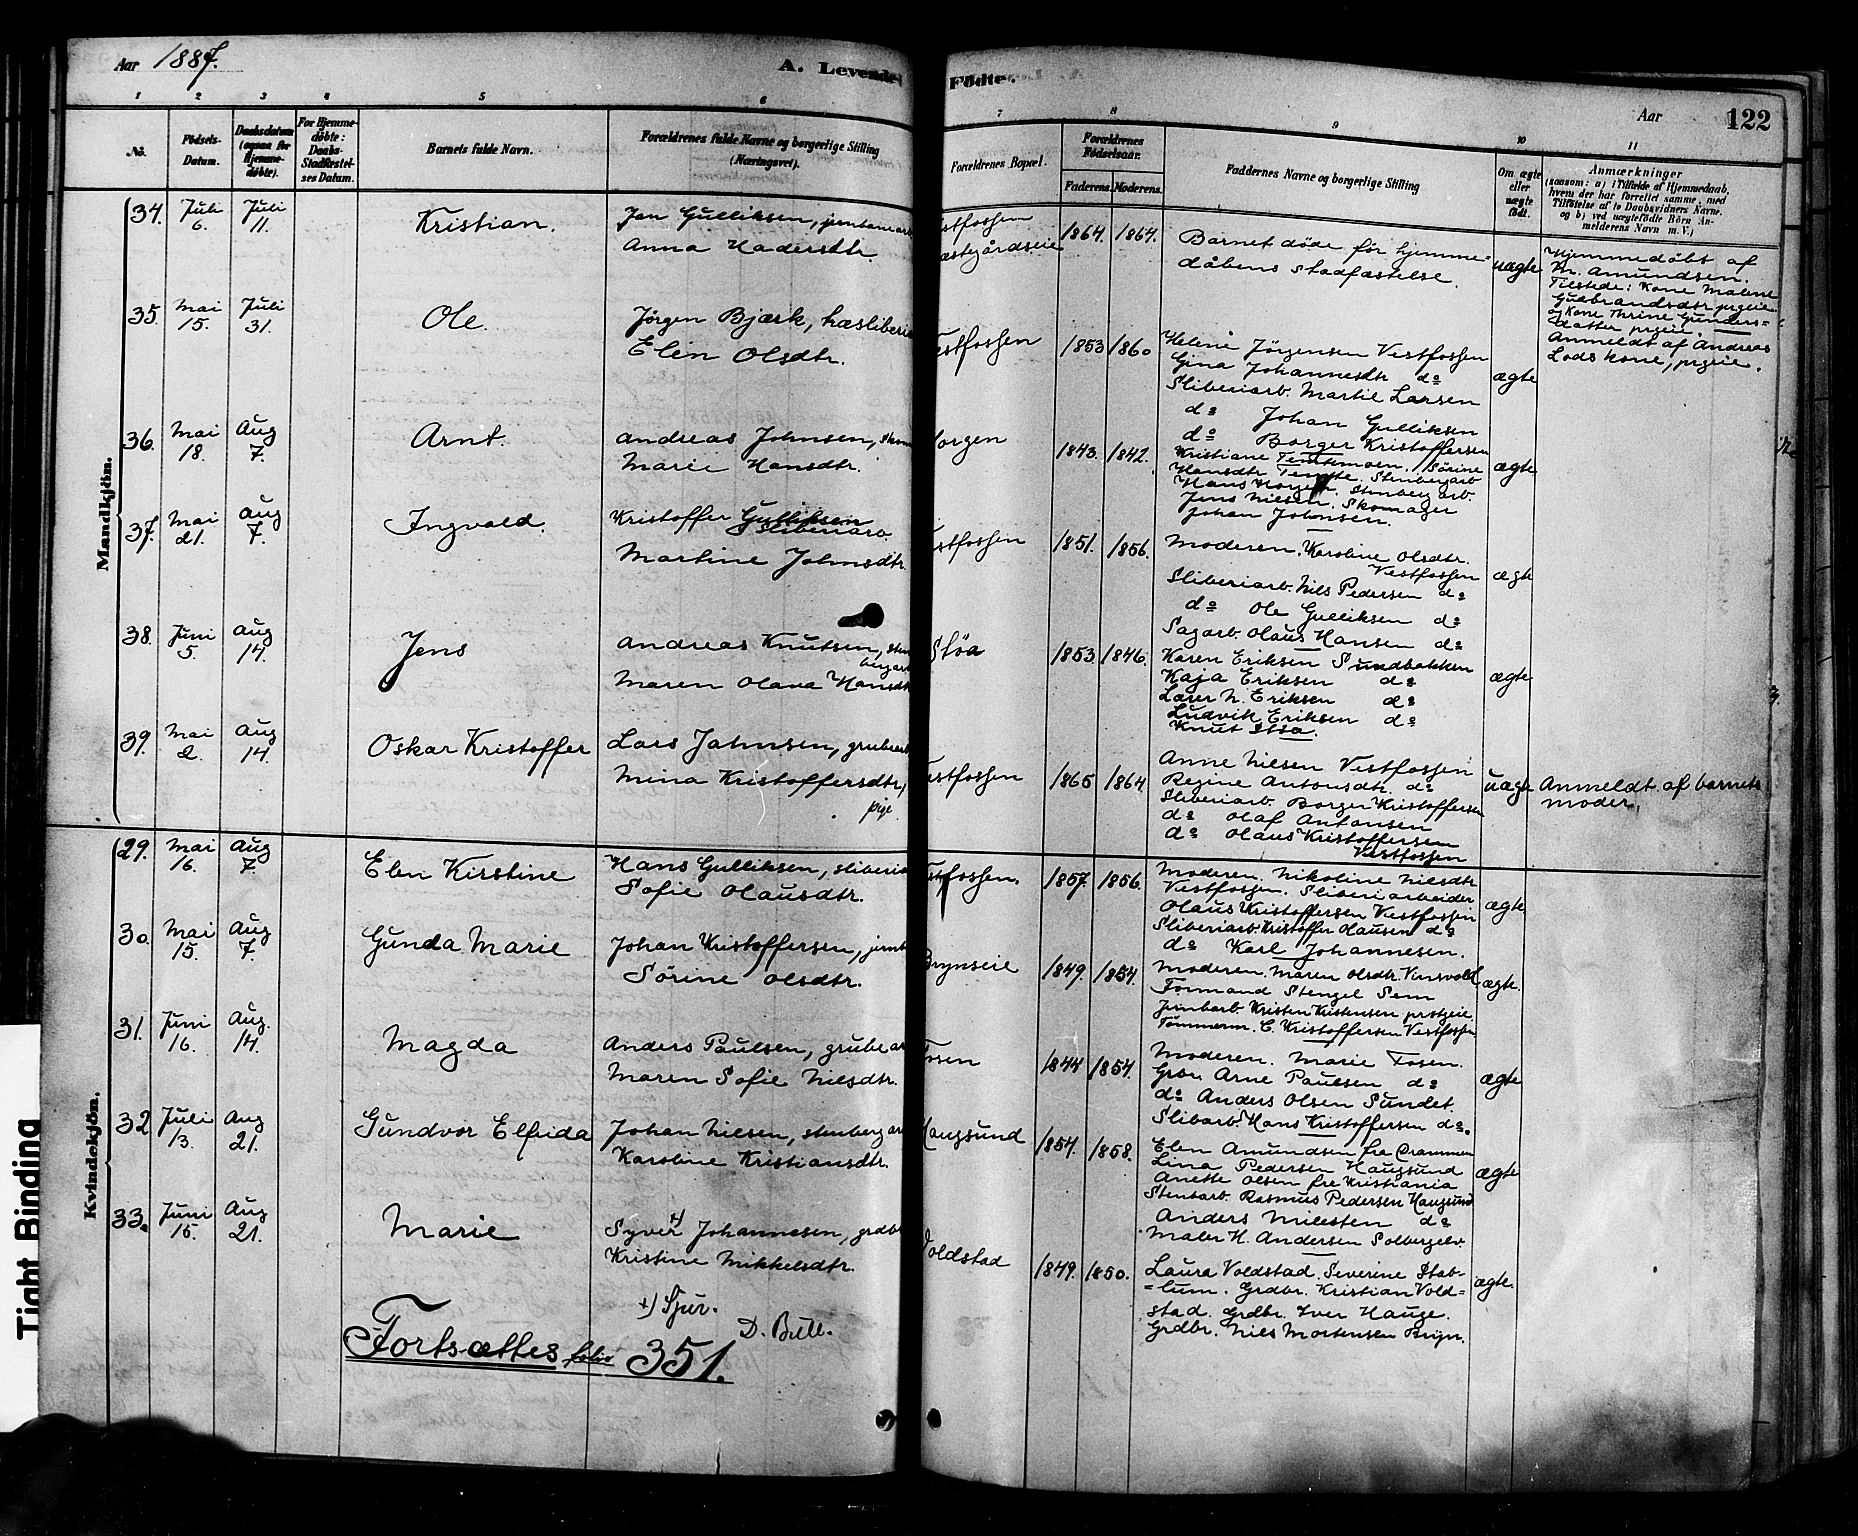 Aar 1887.
A. Levende
Fødte.
Aar
122
1 2 3 4 5 6 7 8 9 10 11
No.
Fødsels-
Datum.
Daabsdatum
(ogsaa for
Hjemme-
døbte).
For Hjemme-
døbte:
Daabs-
Stadfæstel-
ses Datum.
Barnets fulde Navn.
Forældrenes fulde Navne og borgerlige Stilling
(Næringsvei).
Forældrenes Bopæl.
Forældrenes
Fødselsaar.
Faderens. Moderens.
Faddernes Navne og borgerlige Stilling
Om ægte
eller
uægte
født.
Anmærkninger
(saasom: a) i Tilfælde af Hjemmedaab,
hvem der har forrettet samme, med
Tilføielse af to Daabsvidners Navne,
og b) ved uægtefødte Børn An-
melderens Navn m. V.)
Mandkjön.
34. Juli 6. Juli 11. Kristian.
Jon Gulliksen, jernbanearb
Anna Hadersdtr.
stfossen
1864. 1864.
Barnet døde før hjemme-
dåbens stadfæstelse.
uægte
Hjemmedøbt af
Amundsen.
Tilstede: Kone Malene
Gulbrandsdtr prgeie
og Kone Thrine Gunders-
datter prgeie.
Anmeldt af Andreas
Lods kone, prgeie.
35. Mai 15. Juli 31. Ole.
Jørgen Bjærk, træsliberia
Elen Olsdtr.
estfossen
1853 1860
Helene Jørgensen Vestfossen
Gina Johannesdtr do
Sliberiarb. Martil Larsen
do Johan Gulliksen
do Borger Kristoffersen
ægte
36. Mai 18. Aug 7. Arnt.
Andreas Johnsen, skom
Marie Hansdtr.
orgen
1843. 1842.
Kristiane Sørine
Hansdtr Stenbergarb
Hans Stenbergarb.
Jens Nilsen, Skomager
Johan Johnsen.
ægte
37. Mai 21. Aug 7. Ingvald.
Kristoffer Gulliksen
Sliberiarb.
Martine Johnsdtr.
estfossen
1851. 1856.
Moderen. Karoline Olsdtr.
Vestfossen
Sliberiarb. Nils Pedersen do
do Ole Gulliksen do
Sagarb. Olaus Hansen do
ægte
38. Juni 5. Aug 14. Jens
Andreas Knutsen, sten
bergarb
Maren Olava Hansdt
Støa
1853 1846.
Karen Eriksen Sundbakken
Kaja Eriksen do
Lærer N. Eriksen do
Ludvik Eriksen do
Knut Støa.
ægte
39. Mai 2. Aug 14. Oskar Kristoffer
Lars Johnsen, grubearb
Mina Kristoffersdtr,
pige.
estfossen
1865 1864.
Anne Nilsen Vestfossen
Regine Antonsdtr. do
Sliberiarb. Borger Kristoffersen
do Olaf Antonsen
do Olaus Kristoffersen
Vestfossen
uægte
Anmeldt af barnets
moder.
Kvindekjön.
29. Mai 16. Aug 7. Elen Kirstine
Hans Gulliksen, sliberia
Sofie Olausdtr.
stfossen.
1857. 1856.
Moderen. Nikoline Nilsdtr
Vestfossen. Sliberiarbeider
Olaus Kristoffersen Vestfossen
Sliberiarb. Kristoffer Olausen do
do Karl Johannesen.
ægte
30. Mai 15. Aug 7. Gunda Marie
Johan Kristoffersen, jernb
Sørine Olsdtr.
Brynseie
1849. 1854.
Moderen. Maren Olsdtr.
Formand Stengel Sem
Jernbarb. Kristen Kristensen prstgeie.
Tømmerm. C. Kristoffersen Vestfossen
ægte.
31. Juni 16. Aug. 14. Magda
Anders Paulsen, grubear
Maren Sofie Nilsdtr.
Fosen
1844 1854.
Moderen. Marie Fosen.
Grbr. Arne Paulsen do
do Anders Olsen Sundet.
Slibarb. Hans Kristoffersen do.
ægte
32 Juli 13. Aug 21. Gundvor Elfrida
Johan Nilsen, stenbergar
Karoline Kristiansdtr.
Haugsund
1854. 1858.
Elen Amundsen fra Drammen
Lina Pedersen Haugsund
Anette Olsen fra Kristiania
Stenbarb. Rasmus Pedersen Haugsund
Anders Milesten do
Maler H. Andersen Solbergelv.
ægte
33. Juni 15. Aug 21. Marie
Syver +) Johannesen, grdbr
Kristine Mikkelsdtr.
Voldstad
1849. 1850.
Laura Voldstad. Severine Stab-
=lum. Grdbr. Kristian Vold=
stad. Grdbr. Iver Hauge.
Grdbr. Nils Mortensen Bryn.
ægte.
+) Sjur.
D. Bull.
Fortsættes folio 351.
Tight Binding